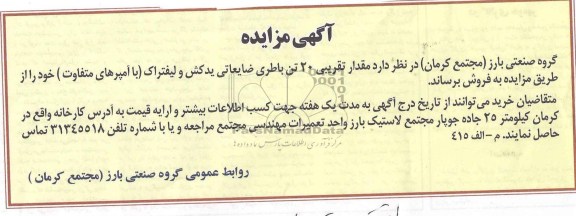 آگهی مزایده
گروه صنعتی بارز (مجتمع کرمان) در نظر دارد مقدار تقریبی ۲۰ تن باطری ضایعاتی یدکش و لیفتراک (با آمپرهای متفاوت ) خود را از
طریق مزایده به فروش برساند.
متقاضیان خرید می‌توانند از تاریخ درج آگهی به مدت یک هفته جهت کسب اطلاعات بیشتر و ارایه قیمت به آدرس کارخانه واقع در
کرمان کیلومتر ۲۵ جاده جوپار مجتمع لاستیک بارز واحد تعمیرات مهندسی مجتمع مراجعه و یا با شماره تلفن ۳۱۳۴۵۵۱۸ تماس
حاصل نمایند. م-الف ۴۱۵
روابط عمومی گروه صنعتی بارز (مجتمع کرمان )